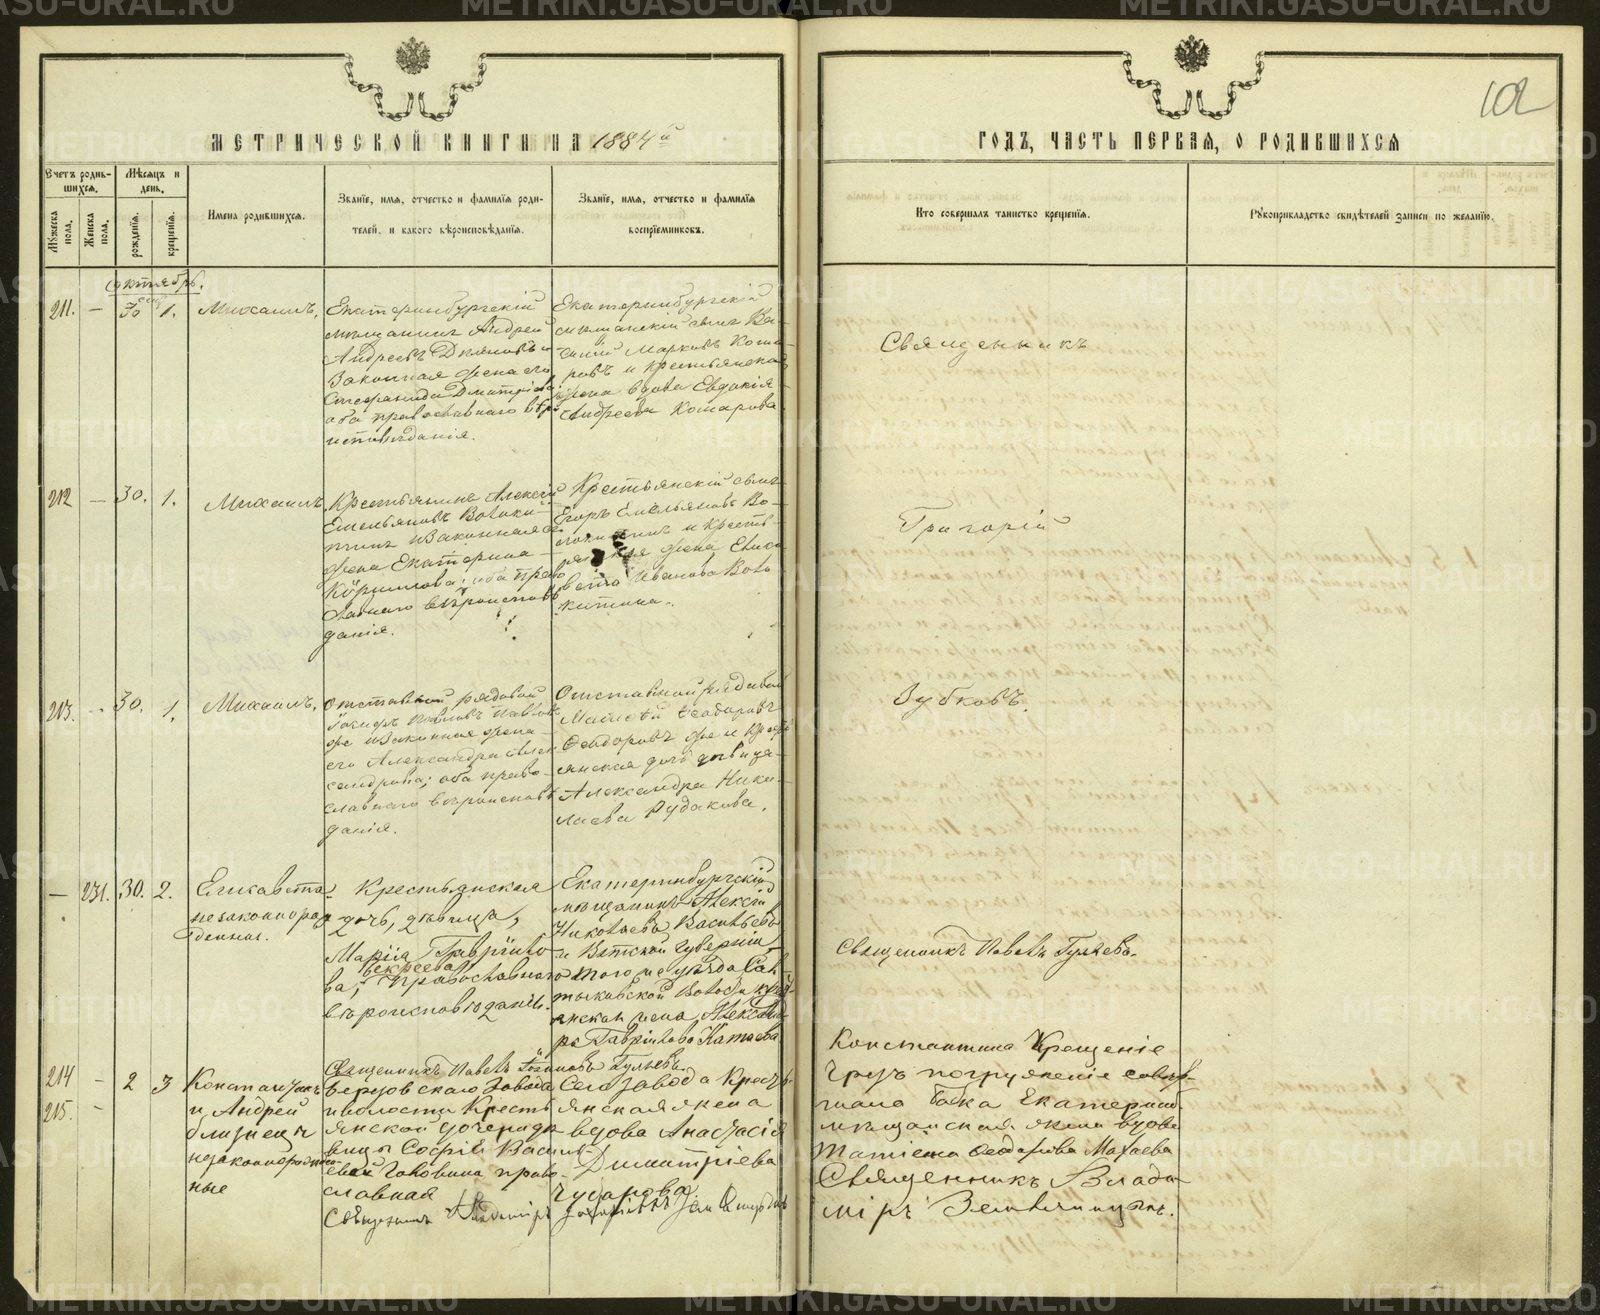 МЕТРИЧЕСКОЙ КНИГИ НА 1884й
ГОДЪ, ЧАСТЬ ПЕРВАЯ, О РОДИВШИХСЯ
102
Счетъ родив-
шихся.
Мужеска пола.
Женска пола.
Мѣсяцъ и
день.
рожденія.
крещенія.
Имена родившихся.
Званіе, имя, отчество и фамилія роди-
телей, и какого вѣроисповѣданія.
Званіе, имя, отчество и фамилія
воспріемниковъ.
Кто совершалъ таинство крещенія.
Рукоприкладство свидѣтелей записи по желанію.
октябрь.
211. — 30 1. Михаилъ.
Екатеринбургскій
мѣщанинъ Андрей
Андреевъ и
законная жена его
Стефанида Дмитріева
оба православнаго вѣро
исповѣданія.
Екатеринбургскій
мѣщанскій сынъ Ва-
силій Марковъ Кома-
ровъ и крестьянская
жена вдова Евдокія
Андреева Комарова.
Священникъ
212 — 30. 1. Михаилъ.
Крестьянинъ Алексій
Емельяновъ Волоки-
тинъ и законная его
жена Екатерина
Кириллова; оба право
славнаго вѣроисповѣ
данія.
Крестьянскій сынъ
Егоръ Емельяновъ Во-
локитинъ и кресть-
янская жена Елиса
вета Иванова Воло
китина.
Григорій
213. — 30. 1. Михаилъ.
Отставной рядовой
Павлов
же и законная жена
его Александра Алек
сандрова; оба право-
славнаго вѣроисповѣ
данія.
Отставной рядовой
Моисей Ѳеодоровъ
Ѳеодоровъ же и кресть
янская дочь дѣвица
Александра Нико-
лаева Рудакова.
Зубковъ.
— 231. 30. 2. Елисавета
незаконнорож
денная.
Крестьянская
дочь, дѣвица,
Марія Гаврiило-
ва; православнаго
вѣроисповѣданія.
Екатеринбургскій
мѣщанинъ Алексій
Николаевъ Васильевъ
и Вятской губерніи,
того же уѣзда Сал-
тыковской волости кресть-
янская жена Александ
ра Гаврiилова Катаева
Священникъ Павелъ Гуляевъ.
Священникъ Павелъ Гуляевъ.
214 — 2 3 Константинъ
215. —
и Андрей
близнецы
незаконнорожден
ные
завода
и волости кресть
янской дочери дѣ
вицы Софіи Василь-
евой право-
славная
завода кресть-
янская жена
вдова Анастасія
Димитріева
Священникъ Владиміръ
Константина крещеніе
чрезъ погруженіе совер-
шала бабка Екатеринб.
мѣщанская жена вдова
Татіана Ѳеодорова
Священникъ Влади
міръ
METRIKI.GASO-URAL.RU